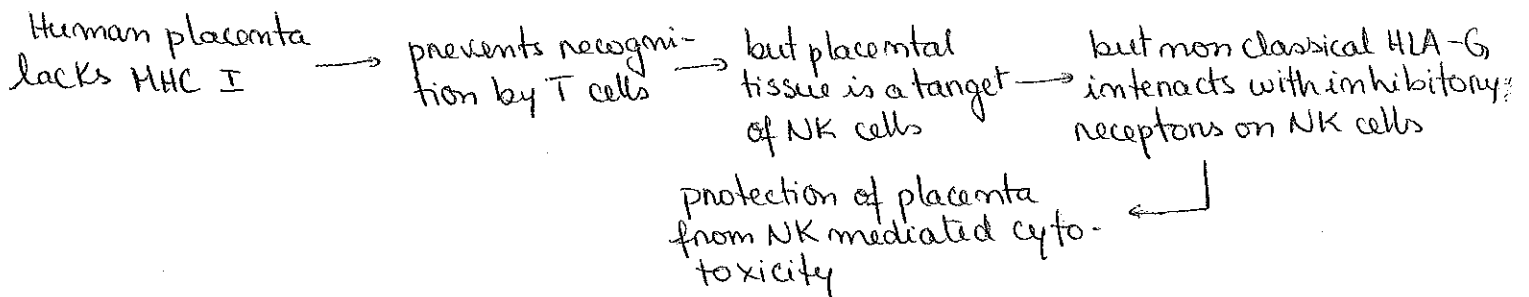 Human placenta
lacks MHC I
→ prevents recogni-
tion by T cells
→ but placental
tissue is a target
of NK cells
→ but non classical HLA-G
interacts with inhibitory
receptors on NK cells
protection of placenta
from NK mediated cyto-
toxicity